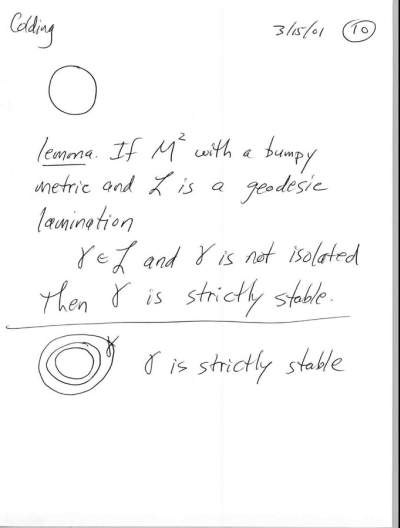 Colding 3/15/01 10
lemma. If M² with a bumpy
metric and L is a geodesic
lamination
γ ∈ L and γ is not isolated
Then γ is strictly stable.
γ
γ is strictly stable